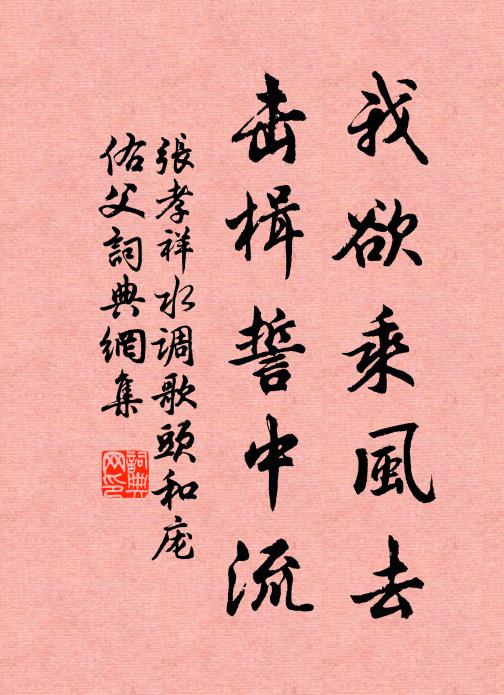 我欲乘風去
击楫誓中流
張孝祥水调歌頭和庞
佑父詞典網集
詞典网印